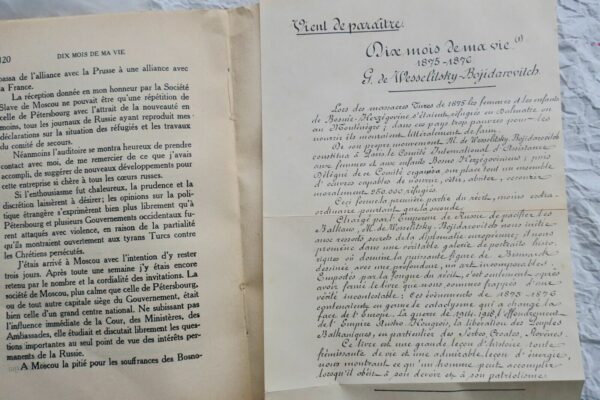 120 DIX MOIS DE MA VIE
passa de l'alliance avec la Prusse à une alliance avec
la France.
La réception donnée en mon honneur par la Société
Slave de Moscou ne pouvait être qu'une répétition de
celle de Pétersbourg, avec l'attrait de la nouveauté en
moins, tous les journaux de Russie ayant reproduit mes
déclarations sur la situation des réfugiés et les travaux
du comité de secours.
Néanmoins l'auditoire se montra heureux de prendre
contact avec moi, de me remercier de ce que j'avais
accompli, de suggérer de nouveaux développements pour
cette entreprise si chère à tous les cœurs russes.
Si l'enthousiasme fut chaleureux, la prudence et la
discrétion laissèrent à désirer; les opinions sur la poli-
tique étrangère s'exprimaient bien plus librement qu'à
Pétersbourg et plusieurs Gouvernements occidentaux fu-
rent attaqués avec violence, en raison de la partialité
qu'ils montraient ouvertement aux tyrans Turcs contre
les Chrétiens persécutés.
J'étais arrivé à Moscou avec l'intention d'y rester
trois jours. Après toute une semaine j'y étais encore
retenu par le nombre et la cordialité des invitations. La
société de Moscou, plus calme que celle de Pétersbourg,
ou de tout autre capitale siège du Gouvernement, était
bien celle d'un grand centre national. Ne subissant pas
l'influence immédiate de la Cour, des Ministères, des
Ambassades, elle étudiait et discutait librement les ques-
tions importantes au seul point de vue des intérêts per-
manents de la Russie.
A Moscou la pitié pour les souffrances des Bosno-
Vient de paraître.
Dix mois de ma vie (1)
1875-1876
G. de Wesselitsky-Bojidarovitch.
Lors des massacres Turcs de 1875 les femmes et les enfants
de Bosnie-Herzégovine s'étaient réfugiés en Dalmatie ou
au Monténégro; dans ces pays trop pauvres pour les
nourrir ils mouraient littéralement de faim.
De son propre mouvement M. de Wesselitsky-Bojidarovitch
constitua à Paris le Comité International d'Assistance
aux femmes et aux enfants Bosno-Herzégoviniens; puis
Délégué de ce Comité organisa sur place tout un ensemble
d'œuvres capables de nourrir, vêtir, abriter, secourir
moralement 250.000 réfugiés.
Ceci forme la première partie du récit, moins extra-
ordinaire pourtant que la seconde.
Chargé par l'Empereur de Russie de pacifier les
Balkans, M. de Wesselitsky-Bojidarovitch nous initie
aux ressorts secrets de la diplomatie européenne, et nous
promène dans une véritable galerie de portraits histo-
riques où domine la puissante figure de Bismarck
dessinée avec une profondeur, un art incomparables.
Empoignés par la fougue du récit, c'est seulement après
avoir fermé le livre que nous sommes frappés d'une
vérité incontestable: Ces événements de 1875-1876
contenaient en germe le cataclysme qui a changé la
face de l'Europe. La guerre de 1914-1918, l'effondrement
de l'Empire Austro-Hongrois, la libération des Peuples
Balkaniques, en particulier des Serbes, Croates, Slovènes.
Ce livre est une grande leçon d'histoire toute
frémissante de vie et une admirable leçon d'énergie,
nous montrant ce qu'un homme peut accomplir
lorsqu'il obéit à son devoir et à son patriotisme.